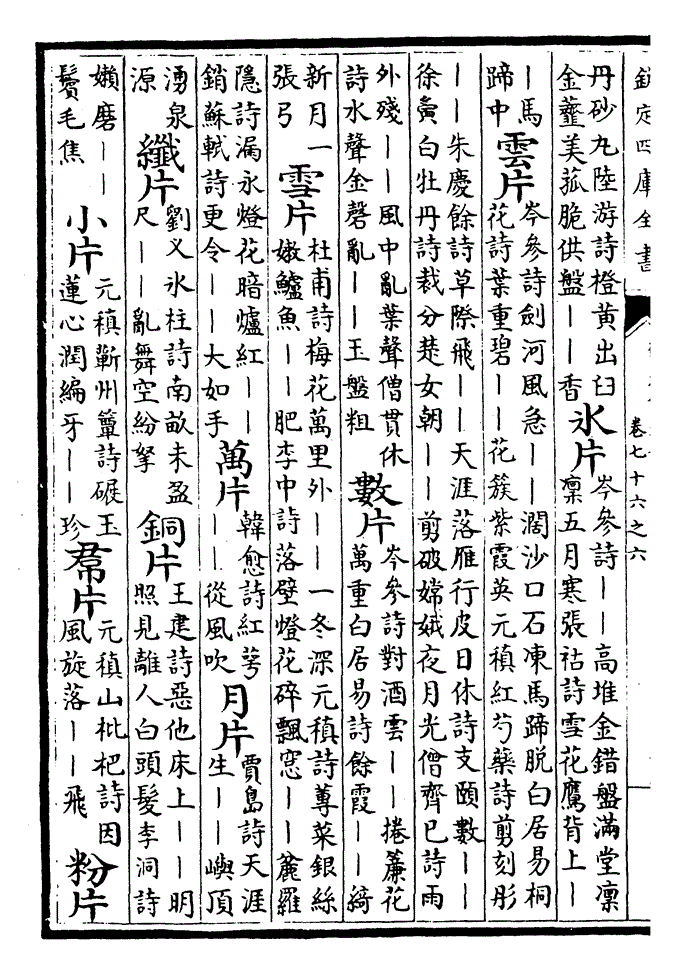 欽定四庫全書
卷七十六之六
丹砂九陸游詩橙黄出臼
金虀美菰脆供盤——香
氷片
岑參詩——高堆金錯盤滿堂凜
凜五月寒張祜詩雪花鷹背上—
—馬
蹄中
雲片
岑參詩劍河風急——濶沙口石凍馬蹄脱白居易桐
花詩葉重碧——花簇紫霞英元稹紅芍藥詩剪刻彤
——朱慶餘詩草際飛——天涯落雁行皮日休詩支頤數——
徐夤白牡丹詩裁分楚女朝——剪破嫦娥夜月光僧齊已詩雨
外殘——風中亂葉聲僧貫休
詩水聲金磬亂——玉盤粗
數片
岑參詩對酒雲——捲簾花
萬重白居易詩餘霞——綺
新月一
張弓
雪片
杜甫詩梅花萬里外——一冬深元稹詩蓴菜銀絲
嫩鱸魚——肥李中詩落壁燈花碎飄窓——麄羅
隱詩漏永燈花暗爐紅——
銷蘇軾詩更令——大如手
萬片
韓愈詩紅萼
——從風吹
月片
賈島詩天涯
生——嶼頂
湧泉
源
纖片
劉义氷柱詩南畝未盈
尺——亂舞空紛拏
銅片
王建詩惡他床上——明
照見離人白頭髮李洞詩
嬾磨——
鬢毛焦
小片
元稹蘄州簟詩碾玉
蓮心潤編牙——珍
羣片
元稹山枇杷詩因
風旋落——飛
粉片